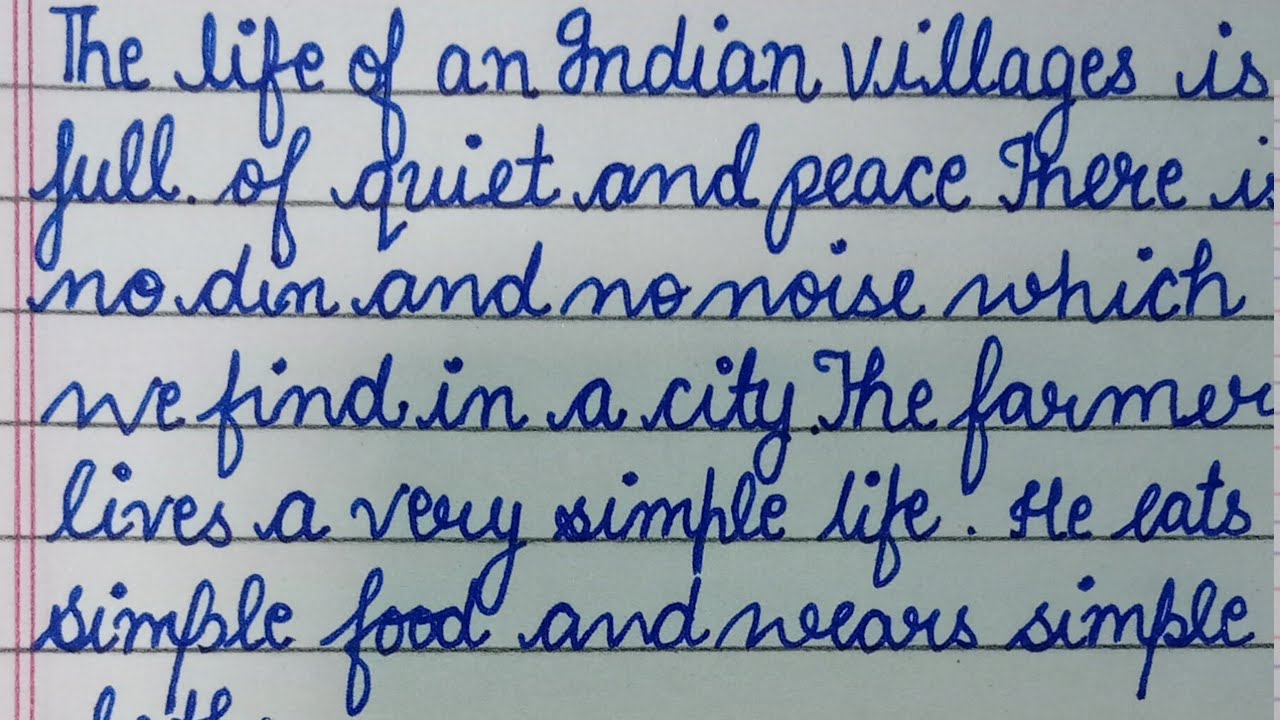 The life of an Indian villages is
full. of quiet and peace There is
no din and no noise which
we find in a city. The farmer
lives a very simple life. He eats
simple food and wears simple